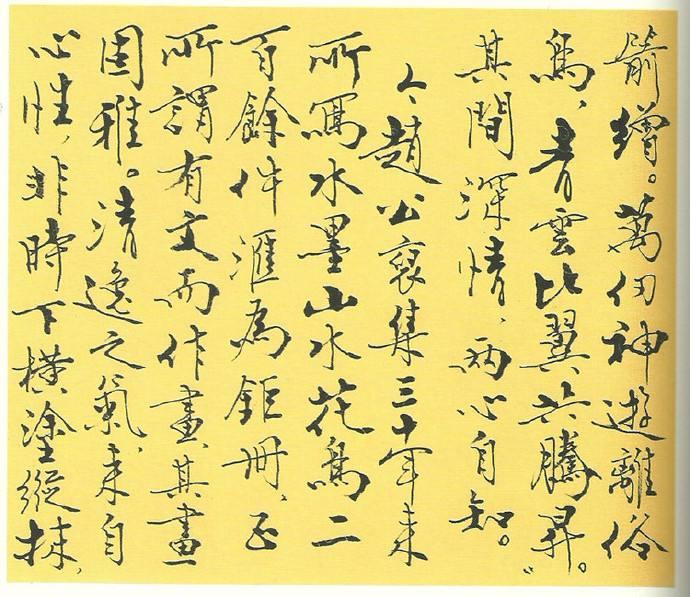 箭繒。萬仞神遊離俗
鳥,青雲比翼共騰昇。”
其間深情,兩心自知。
今趙公裒集三十年来
所寫水墨山水花鳥二
百餘件滙為鉅冊,正
所謂有文而作畫,其畫
固雅。清逸之氣,来自
心性,非時下橫塗縱抹,